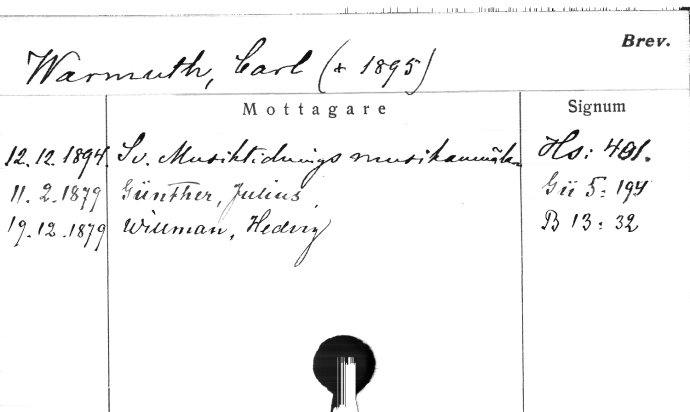 Brev.
Warmuth, Carl (+ 1895)
Mottagare Signum
12.12.1894. Sv. Musiktidnings musikanmälare Hs: 401.
11.2.1879 Günther, Julius. Gü 5: 194
19.12.1879 Willman, Hedvig B 13: 32